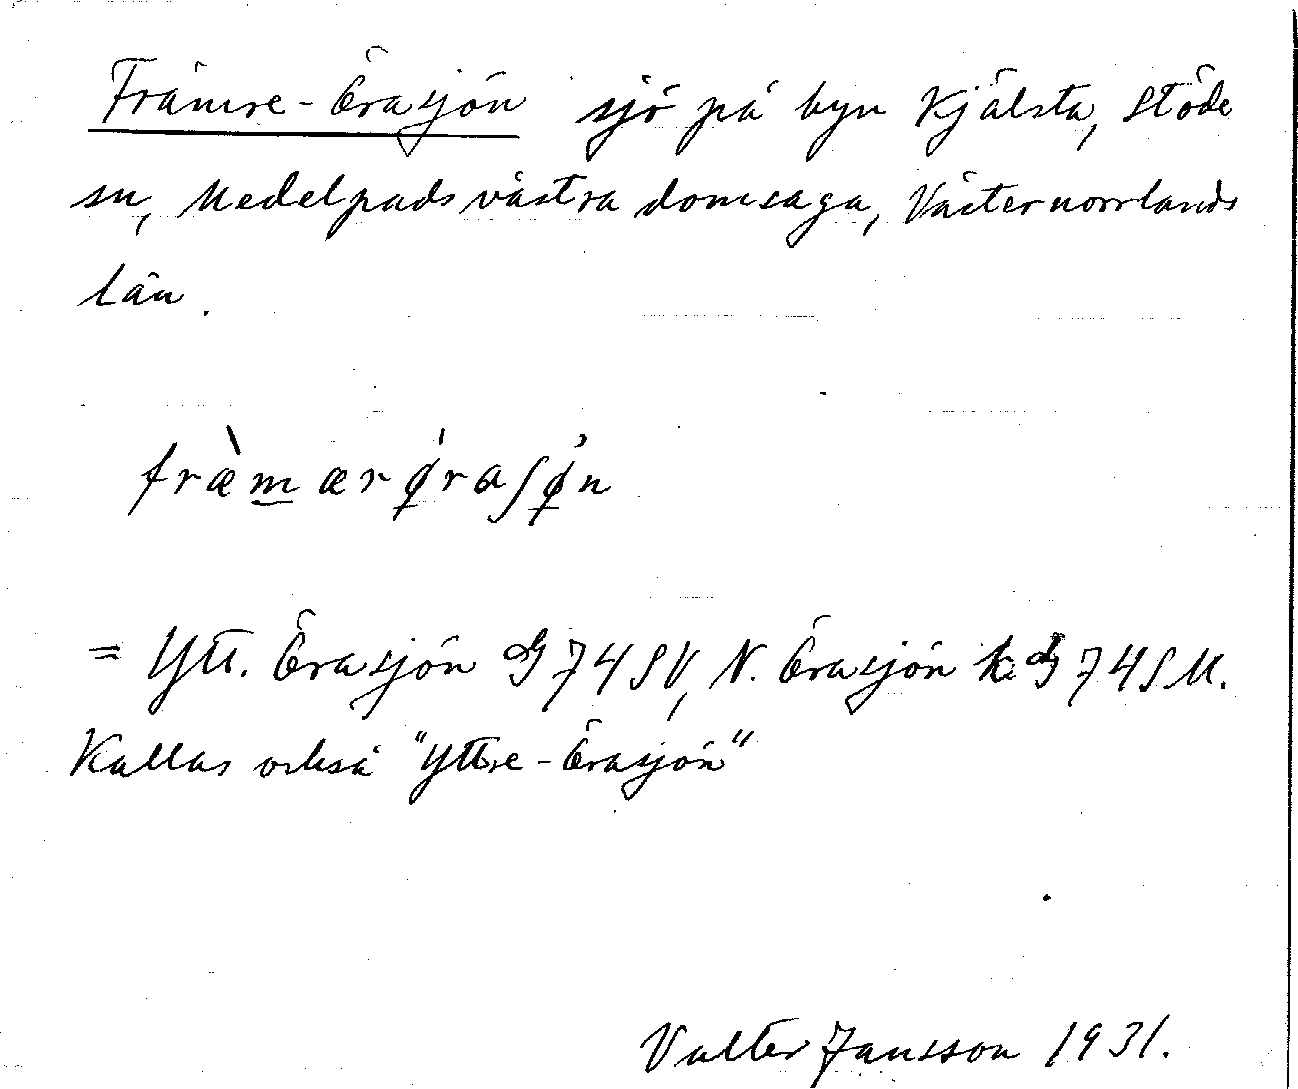 Främre-Örasjön sjö på byn Kjälsta, Stöde
sn, Medelpads västra domsaga, Västernorrlands
län.
fræ̀mærǿ̨raʃø̨̓n
= Ytt. Örasjön G 74 SV, N. Örasjön k. G 74 S M.
Kallas också "Yttre-Örasjön"
Valter Jansson 1931.